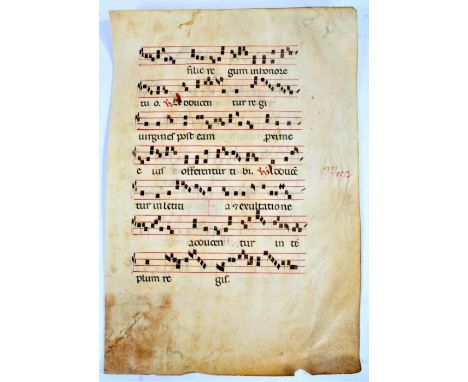 filie re gum in honore
tu o. ℟ Adducen tur regi
virgines post eam proxime
e ius offerentur ti bi. ℟ Adducē
tur in letiti a et exultatione
adducen tur in tē
plum re gis.